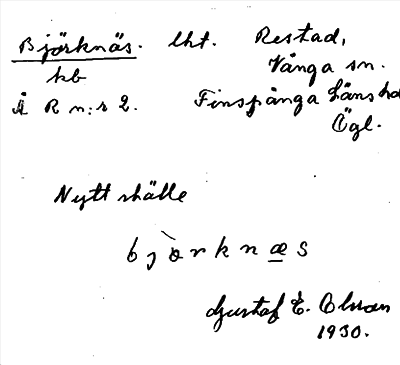 Björknäs. lht. Restad,
hb Vånga sn.
Å R n:r 2. Finspånga länshd
Ögl.
Nytt ställe
b j ò r k n æ s
Gustaf E. Olsson
1930.